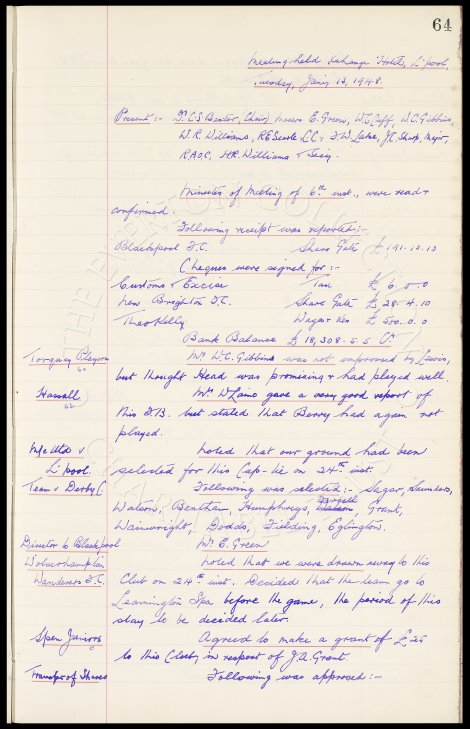 64
Meeting held Exchange Hotel, L'pool,
Tuesday, Jany 13, 1948.
Present :- T.C.S. Baxter, (Chair) Messrs E. Green, W.C. Cuff, W.C. Gibbins,
W.R. Williams, R.E. Searle C.C., J.C. Sharp, Major,
R.A.O.C., H.R. Williams & Secy.
Minutes of Meeting of 6th inst., were read &
confirmed
Following receipt was reported :-
Blackpool F.C. Share Gate £ 191. 10. 10
Cheques were signed for :-
Customs & Excise Tax £ 6. 0. 0
New Brighton F.C. Share Gate £ 28. 4. 10
Theo Kelly Wages & Xes. £ 500. 0. 0
Bank Balance £ 18,308. 5. 5
Torquay Players Mr. W.C. Gibbins was not impressed by Lewis,
but thought Head was promising & had played well.
Hassall Mr. gave a very good report of
this F.B. but stated that Berry had again not
played.
M/c Utd v noted that our ground had been
L'pool. selected for this Cup-tie on 24th inst.
Team v Derby C. Following was selected :- Sagar, Saunders,
Farrell
Watson, Bentham, Humphreys, Grant,
Wainwright, Dodds, Fielding, Eglington.
Director to Blackpool Mr. E. Green
Wolverhampton noted that we were drawn away to this
Wanderers F.C. Club on 24th inst. Decided that the team go to
Leamington Spa before the game, the period of this
stay to be decided later.
Spen Juniors Agreed to make a grant of £25
to this Club, in respect of J.A. Grant.
Transfer of Shares Following was approved :-